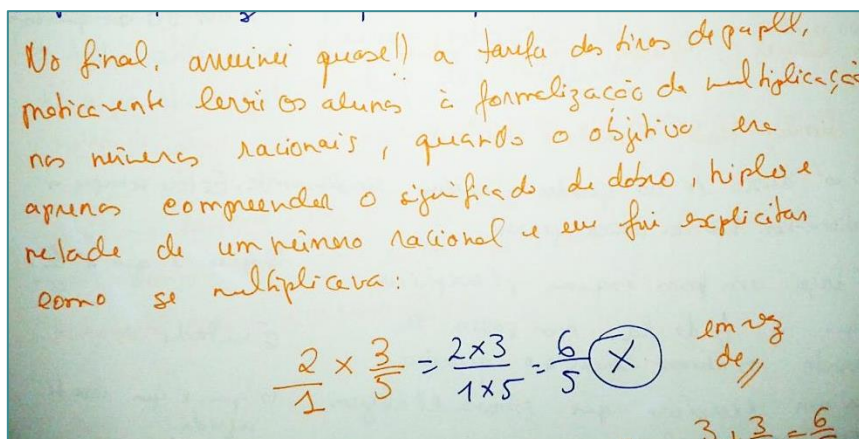 No final, arruinei quase!! a tarefa das tiras de papel,
praticamente levei os alunos à formalização da multiplicação
nos números racionais, quando o objetivo era
apenas compreender o significado de dobro, triplo e
metade de um número racional e eu fui explicitar
como se multiplicava:
2/1 × 3/5 = 2×3/1×5 = 6/5 X em vez
de //
3 + 3/ = 6/